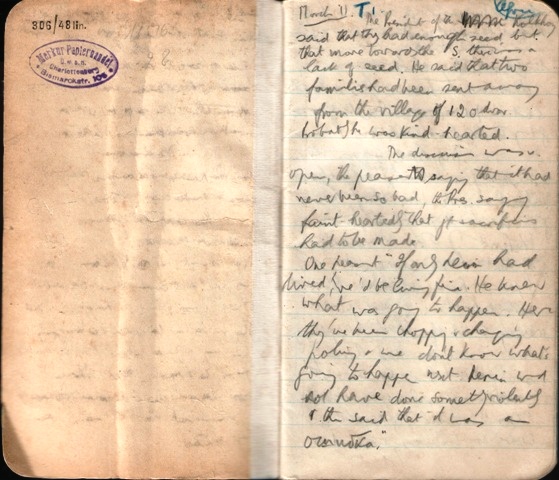 306/48 lin.
Merkur-Papierhandel
G.m.b.H.
Charlottenburg
Bismarckstr. 106
March 11. T. 1
The President of the
said that they had enough seed but
that more towards the S, there was a
lack of seed. He said that two
families had been sent away
from the village of 120 dvor
but that he was kind-hearted.
The discussion was
open, the peasants saying that it had
never been so bad, the Pres. saying
faint-hearted & that gt sacrifices
had to be made
One peasant "If only Lenin had
lived, we'd be living fine. He knew
what was going to happen. Here
they've been chopping & changing
policy & we don't know what's
going to happen next. Lenin wd
not have done something violently
& then said that it was an
ошибка."